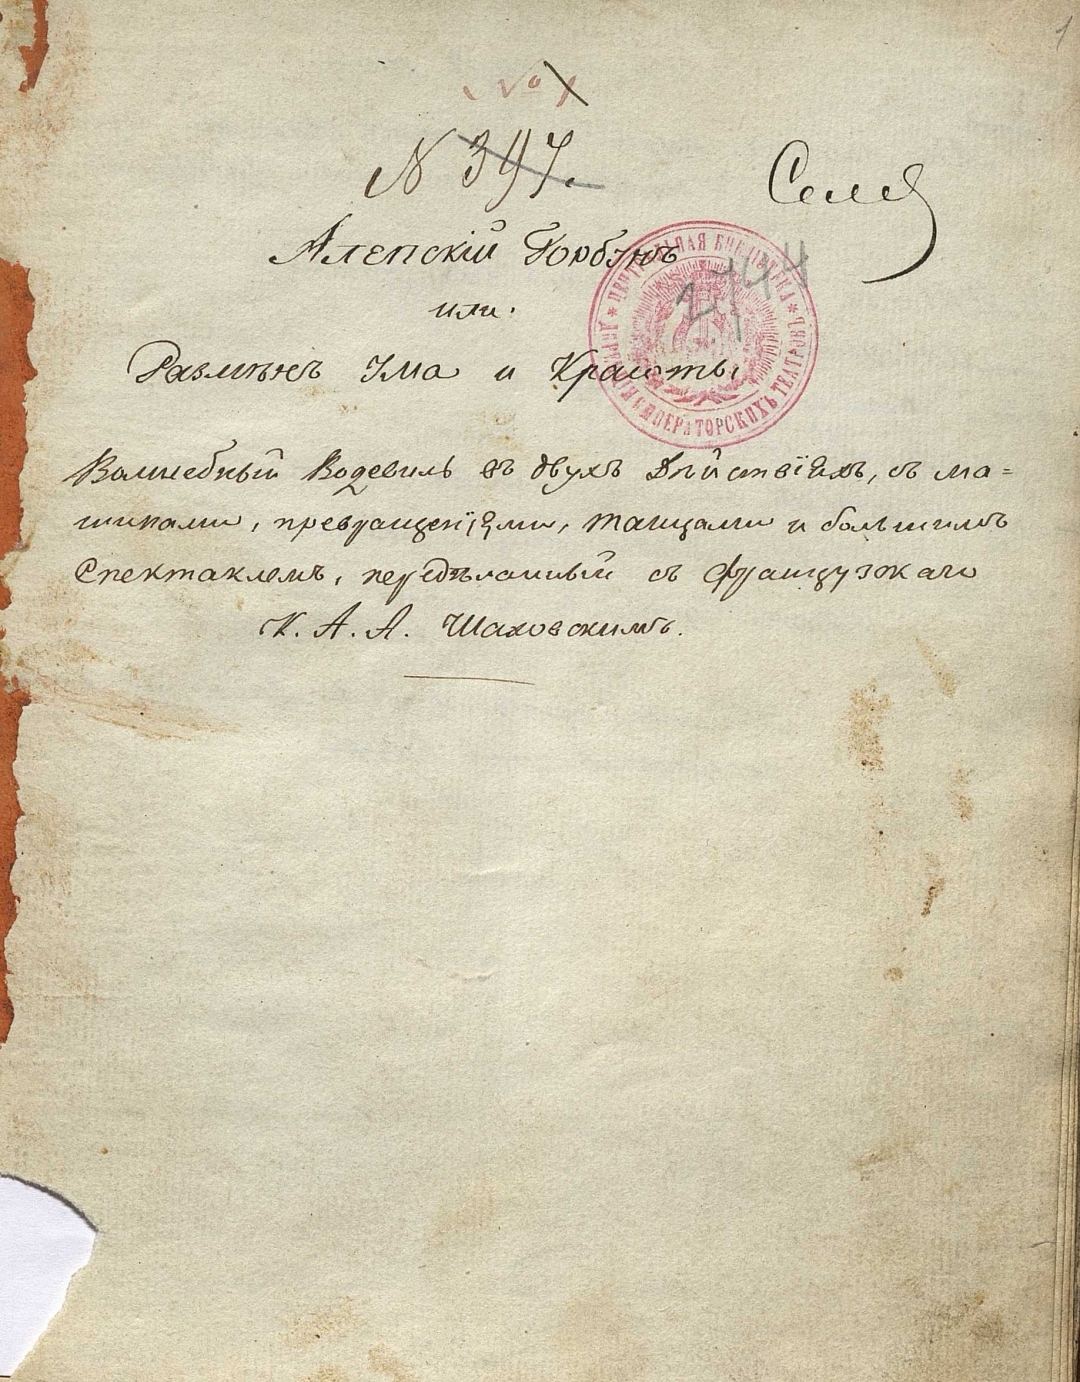 1
№ 1
N 397.
Алепскій Горбунъ
или.
Размѣнъ Ума и Красоты,
Волшебный Водевиль въ двухъ Дѣйствіяхъ, съ ма=
шинами, превращеніями, танцами и большимъ
Спектаклемъ, передѣланный съ Французскаго
К. А. А. Шаховскимъ.
ЦЕНТРАЛЬНАЯ БИБЛІОТЕКА * ДИРЕКЦІИ ИМПЕРАТОРСКИХЪ ТЕАТРОВЪ *